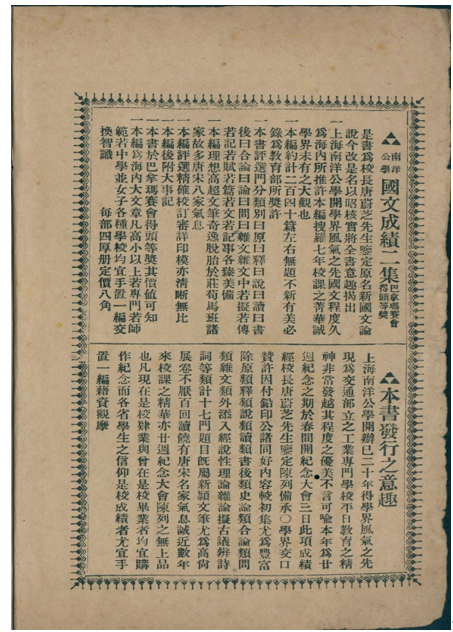 南洋公學 國文成績二集 巴拿瑪賽會得頭等獎
是書爲校長唐蔚芝先生鑒定原名新國文論
說今改是名以昭核實將全書意趣揭出
一上海南洋公學開學界風氣之先國文程度久
爲海內所推許本編搜羅七年校課之菁華誠
學界未有之大觀也
一本編約計二百四十篇左右無題不新有美必
錄爲教育部所獎許
一本書評選門分類別曰原曰釋曰說曰讀曰書
後曰合論曰論曰問曰雜文雜文中若擬若傳
若記若賦若篇若文若記事各臻美備
一本編理想高超文筆奇逸脫胎於莊荀馬班諸
家故多唐宋八家氣息
一本編評選精確校訂審詳印模亦清晰無比
一本編後附大事記
一本書於巴拿瑪賽會得頭等獎其價值可知
一本編爲海內大文章凡高小以上若專門若師
範若中學並女子各種學校均宜手置一編交
換智識 每部四厚册定價八角
本書發行之意趣
上海南洋公學開辦已二十年得學界風氣之先
現爲交通部立之工業專門學校平日教育之精
神非常發越其程度之優美不言可喻本年爲廿
週紀念之期於春間開紀念大會三日此項成績
經校長唐蔚芝先生鑒定陳列備承○學界交口
贊許因付鉛印公諸同好內容較初集尤爲豐富
除原類釋類說類讀類書後類史論類合論類問
類雜文類外添入經說性理論雜論擬古議辨詩
詞等類計十七門題目旣屬新穎文筆尤爲高尙
展卷不厭百回讀饒有唐宋名家氣息誠近數年
來校課之精華亦廿週紀念大會陳列之無上品
也凡現在是校肄業與曾在是校畢業者均宜購
作紀念而各省學生之信仰是校成績者尤宜手
置一編藉資觀摩